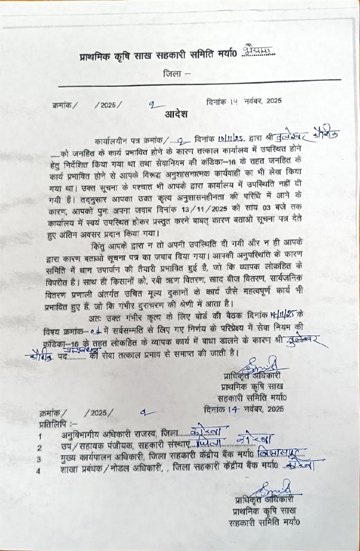 प्राथमिक कृषि साख सहकारी समिति मर्या0
जिला –
क्रमांक/ /2025/ 2 दिनांक 14 नवंबर, 2025
आदेश
कार्यालयीन पत्र क्रमांक/ 2 दिनांक 10/11/25 द्वारा श्री
को जनहित के कार्य प्रभावित होने के कारण तत्काल कार्यालय में उपस्थित होने
हेतु निर्देशित किया गया था तथा सेवानियम की कंडिका–16 के तहत जनहित के
कार्य प्रभावित होने से आपके विरूद्ध अनुशासनात्मक कार्यवाही का भी लेख किया
गया था। उक्त सूचना के पश्चात भी आपके द्वारा कार्यालय में उपस्थिति नहीं दी
गयी है। तद्नुसार आपका उक्त कृत्य अनुशासनहीनता की परिधि में आने के
कारण, आपको पुनः अपना जवाब दिनांक 13/11/2025 को सांय 03 बजे तक
कार्यालय में स्वयं उपस्थित होकर प्रस्तुत करने बाबत् कारण बताओ सूचना पत्र देते
हुए अंतिम अवसर प्रदान किया गया।
किंतु आपके द्वारा न तो अपनी उपस्थिति दी गयी और न ही आपके
द्वारा कारण बताओ सूचना पत्र का जवाब दिया गया। आपकी अनुपस्थिति के कारण
समिति में धान उपार्जन की तैयारी प्रभावित हुई है, जो कि व्यापक लोकहित के
विपरीत है। साथ ही किसानों को, रबी ऋण वितरण, खाद बीज वितरण, सार्वजनिक
वितरण प्रणाली अंतर्गत उचित मूल्य दुकानों के कार्य जैसे महत्वपूर्ण कार्य भी
प्रभावित हुए हैं, जो कि गंभीर दुराचरण की श्रेणी में आता है।
अतः उक्त गंभीर कृत्य के लिए बोर्ड की बैठक दिनांक 14/11/25 के
विषय क्रमांक में सर्वसम्मति से लिए गए निर्णय के परिप्रेक्ष्य में सेवा नियम की
कंडिका–16 के तहत लोकहित के व्यापक कार्य में बाधा डालने के कारण श्री
पद की सेवा तत्काल प्रभाव से समाप्त की जाती है।
प्राधिकृत अधिकारी
प्राथमिक कृषि साख
सहकारी समिति मर्या0
क्रमांक/ /2025/ 2 दिनांक 14 नवंबर, 2025
प्रतिलिपि :–
1 अनुविभागीय अधिकारी राजस्व, जिला कोरबा
2 उप/सहायक पंजीयक, सहकारी संस्थाएं, जिला कोरबा
3 मुख्य कार्यपालन अधिकारी, जिला सहकारी केंद्रीय बैंक मर्या0 बिलासपुर
4 शाखा प्रबंधक/नोडल अधिकारी, जिला सहकारी केंद्रीय बैंक मर्या0 कोरबा
प्राधिकृत अधिकारी
प्राथमिक कृषि साख
सहकारी समिति मर्या0